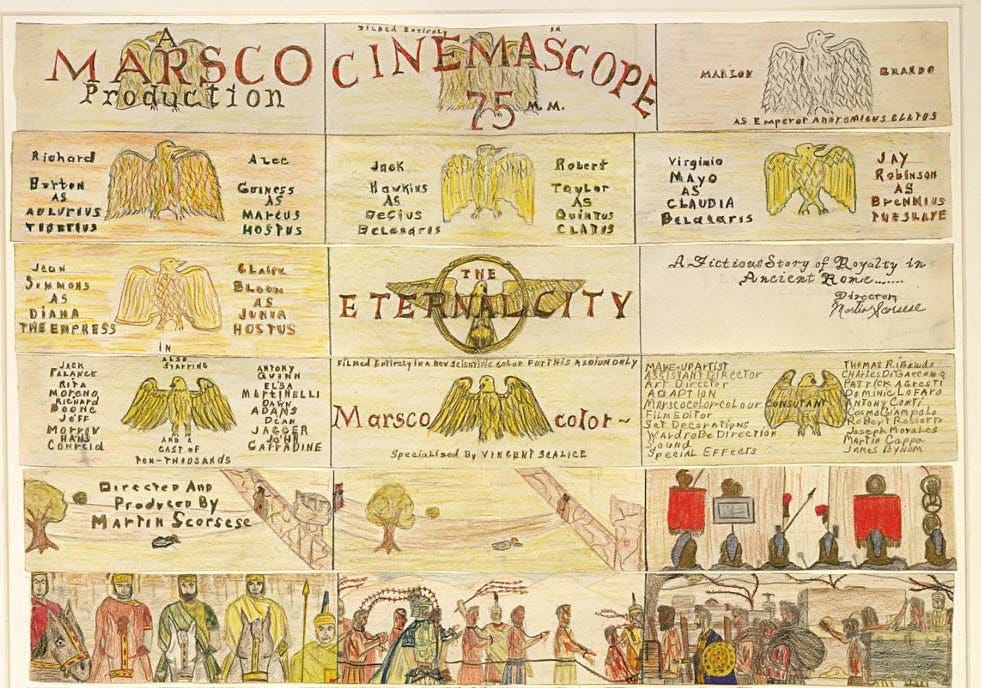 A
MARSCO
Production
FILMED Entirely in
CINEMASCOPE
75 M.M.
MARLON BRANDO
AS EMPEROR
Richard
Burton
AS
AULURIUS
TIBERIUS
Alec
Guiness
AS
MARCUS
HOSTUS
Jack
Hawkins
AS
Decius
Belesaris
Robert
Taylor
AS
Quintus
CLATUS
Virginio
Mayo
AS
CLAUDIA
Belasaris
JAY
Robinson
AS
Brennius
THESLAVE
Jean
Simmons
AS
DIANA
THE EMPRESS
Claire
Bloom
AS
JUNIA
HOSTUS
IN
THE
ETERNAL CITY
A Fictious Story of Royalty in
Ancient Rome.......
Director
Martin Scorsese
ALSO
STARRING
JACK
PALANCE
RITA
Moreno
Richard
Boone
JEFF
Morrow
HANS
Conreid
ANTONY
QUINN
ELSA
MARTINELLI
DAWN
ADAMS
DEAN
JAGGER
JOHN
CARRADINE
AND A
CAST OF
TEN-THOUSANDS
FILMED Entirely in a New Scientific color FOR THIS ADIUM ONLY
Marsco color~
Specialised By VINCENT SCALICE
MAKE-UP Artist
ASSISTANT Director
Art Director
ADAPTION
Marscocolor-colour CONSUTANT
FILM EDITOR
Set Decorations
Wardrobe Direction
Sound
Special Effects
THOMAS
Charles
PATRICK Agresti
DOMINIC LOFARO
ANTONY CONTI
COSMO Ciampolo
Robert Rossetti
Joseph Morales
Martin Cappa
JAMES BYNUM
Directed And
Produced By
Martin Scorsese